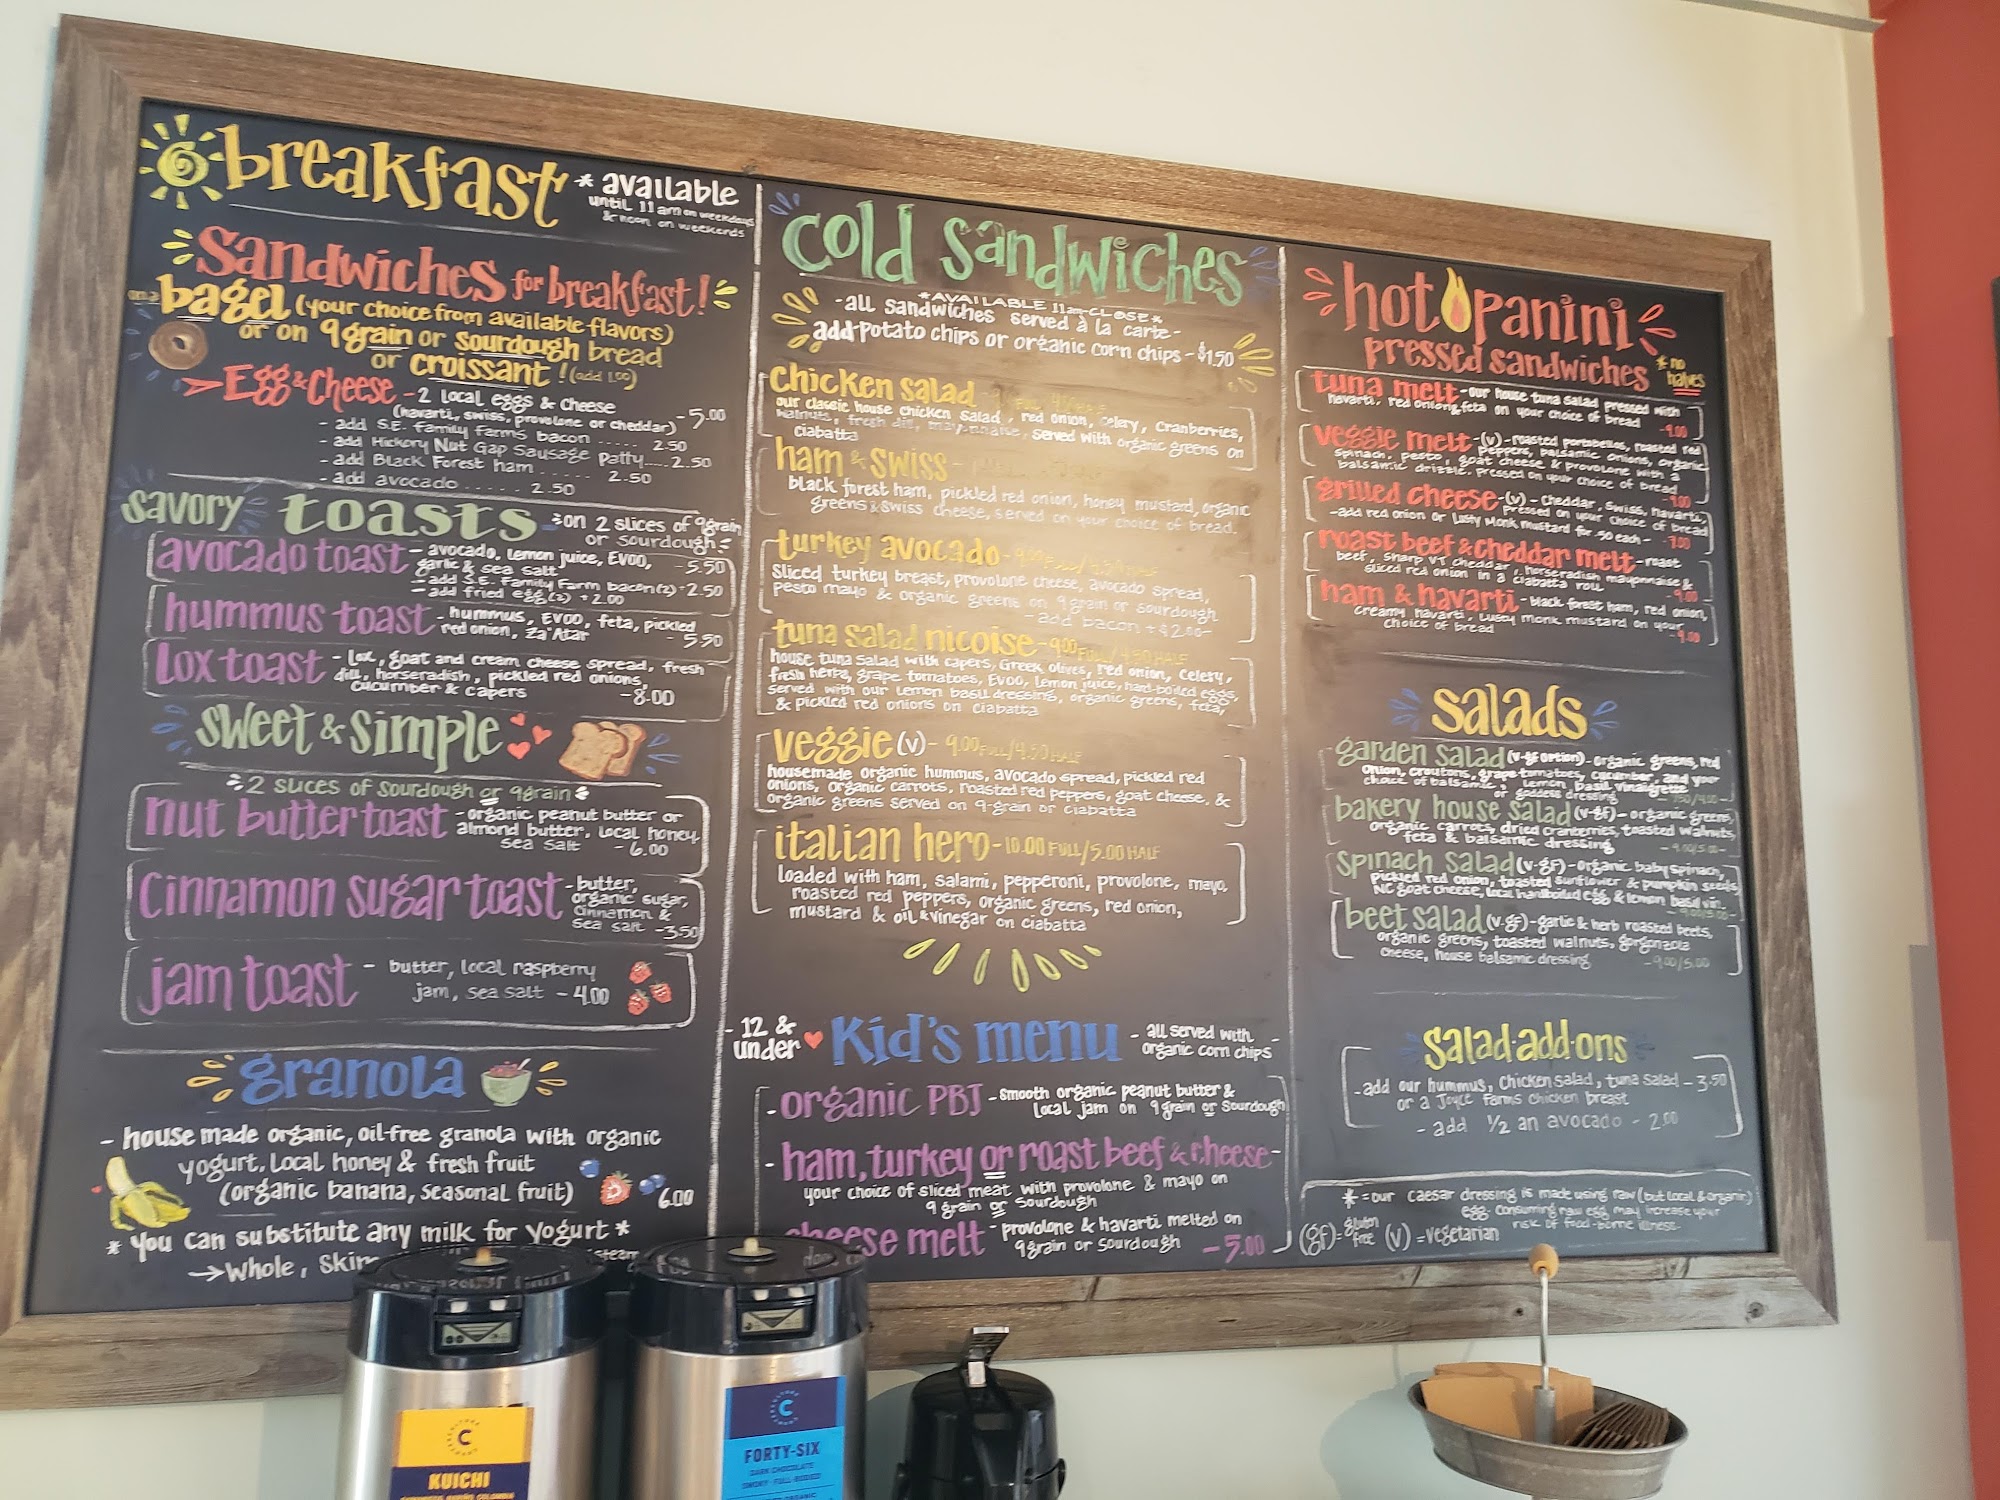 breakfast * available
until 11am on weekdays
& noon on weekends
Sandwiches for breakfast!
on a bagel (your choice from available flavors)
or on 9grain or sourdough bread
or croissant! (add 1.00)
Egg & Cheese - 2 local eggs & cheese
(havarti, swiss, provolone or cheddar) - 5.00
- add S.E. family farms bacon ..... 2.50
- add Hickory Nut Gap Sausage Patty.....2.50
- add Black Forest ham .... 2.50
- add avocado ..... 2.50
savory toasts *on 2 slices of 9grain
or sourdough*
avocado toast - avocado, lemon juice, EVOO,
garlic & sea salt - 5.50
- add S.E. Family Farm bacon(2) +2.50
- add fried egg(2) +2.00
hummus toast - hummus, EVOO, feta, pickled
red onion, Za'Atar - 5.50
lox toast - lox, goat and cream cheese spread, fresh
dill, horseradish, pickled red onions,
cucumber & capers - 8.00
sweet & simple
*2 slices of sourdough or 9grain*
nut butter toast - organic peanut butter or
almond butter, local honey
sea salt - 6.00
cinnamon sugar toast - butter,
organic sugar,
cinnamon &
sea salt - 3.50
jam toast - butter, local raspberry
jam, sea salt - 4.00
granola
- house made organic, oil-free granola with organic
yogurt, local honey & fresh fruit
(organic banana, seasonal fruit) 6.00
* you can substitute any milk for yogurt *
→ Whole, Skim
cold sandwiches
*AVAILABLE 11am-CLOSE*
- all sandwiches served à la carte -
add potato chips or organic corn chips - $1.50
chicken salad -
our classic house chicken salad, red onion, celery, cranberries,
walnuts, fresh dill, mayonnaise, served with organic greens on
ciabatta
ham & swiss -
black forest ham, pickled red onion, honey mustard, organic
greens & swiss cheese, served on your choice of bread.
turkey avocado - 9.00 FULL/4.50 HALF
sliced turkey breast, provolone cheese, avocado spread,
pesto mayo & organic greens on 9grain or sourdough
- add bacon + $2.00 -
tuna salad nicoise - 9.00 FULL/4.50 HALF
house tuna salad with capers, Greek olives, red onion, celery,
fresh herbs, grape tomatoes, EVOO, lemon juice, hard-boiled eggs,
served with our lemon basil dressing, organic greens, feta,
& pickled red onions on ciabatta
veggie (v) - 9.00 FULL/4.50 HALF
housemade organic hummus, avocado spread, pickled red
onions, organic carrots, roasted red peppers, goat cheese, &
organic greens served on 9-grain or ciabatta
italian hero - 10.00 FULL/5.00 HALF
loaded with ham, salami, pepperoni, provolone, mayo,
roasted red peppers, organic greens, red onion,
mustard & oil & vinegar on ciabatta
- 12 &
under Kid's menu - all served with
organic corn chips -
- organic PBJ - smooth organic peanut butter &
local jam on 9grain or sourdough
- ham, turkey or roast beef & cheese -
your choice of sliced meat with provolone & mayo on
9grain or sourdough
cheese melt - provolone & havarti melted on
9grain or sourdough - 5.00
hot panini
pressed sandwiches * no
halves
tuna melt - our house tuna salad pressed with
havarti, red onion & feta on your choice of bread - 9.00
veggie melt - (v) - roasted portabellos, roasted red
peppers, balsamic onions, organic
spinach, pesto, goat cheese & provolone with a
balsamic drizzle. Pressed on your choice of bread - 9.00
grilled cheese - (v) - cheddar, swiss, havarti,
Pressed on your choice of bread
- add red onion or Lusty Monk mustard for .50 each - 7.00
roast beef & cheddar melt - roast
beef, sharp VT cheddar, horseradish mayonnaise &
sliced red onion in a ciabatta roll - 9.00
ham & havarti - black forest ham, red onion,
creamy havarti, Lusty Monk mustard on your
choice of bread - 9.00
salads
garden salad (v-gf option) - organic greens, red
onion, croutons, grape tomatoes, cucumber, and your
choice of balsamic, lemon basil vinaigrette
or goddess dressing - 7.50/4.00 -
bakery house salad (v-gf) - organic greens,
organic carrots, dried cranberries, toasted walnuts,
feta & balsamic dressing - 9.00/5.00 -
spinach salad (v-gf) - organic baby spinach,
pickled red onion, toasted sunflower & pumpkin seeds,
NC goat cheese, local hardboiled egg & lemon basil vin.
- 9.00/5.00 -
beet salad (v-gf) - garlic & herb roasted beets,
organic greens, toasted walnuts, gorgonzola
cheese, house balsamic dressing - 9.00/5.00
salad-add-ons
- add our hummus, chicken salad, tuna salad - 3.50
or a Joyce Farms chicken breast
- add 1/2 an avocado - 2.00
* = our caesar dressing is made using raw (but local & organic)
egg. Consuming raw egg may increase your
risk of food-borne illness.
(gf) = gluten
free (v) = vegetarian
C
KUICHI
C
FORTY-SIX
DARK CHOCOLATE
SMOKY · FULL-BODIED